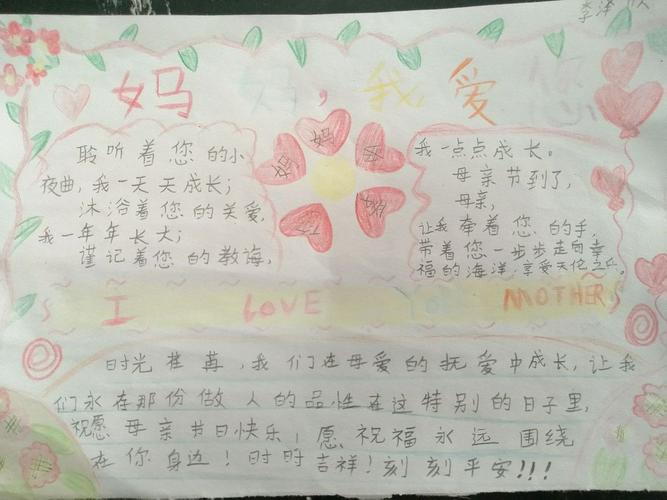 李泽
妈妈,我爱您
聆听着您的小
夜曲,我一天天成长;
沐浴着您的关爱,
我一年年长大;
谨记着您的教诲,
妈
我一点点成长。
母亲节到了,
母亲,
让我牵着您的手,
带着您一步步走向幸
福的海洋,享受天伦之乐。
I LOVE You MOTHER
时光荏苒,我们在母爱的抚爱中成长,让我
们永在那份做人的品性在这特别的日子里,
祝愿母亲节日快乐,愿祝福永远围绕
在你身边!时时吉祥!刻刻平安!!!